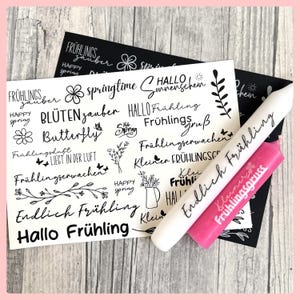 FRÜHLINGS
zauber
HAPPY
Spring
springtime
HALLO
Sonnenschein
FRÜHLINGS
zauber
HAPPY
Spring
BLÜTENzauber
HALLO Frühling
Butterfly
Hello
Spring
Frühlingsgruß
Frühlingsduft
LIEGT IN DER LUFT
Frühlingserwachen
Frühlingserwachen
FRÜHLINGS
HAPPY
Spring
Endlich Frühling
Hallo Frühling
Endlich Frühling
kleiner
Frühlingsgruss